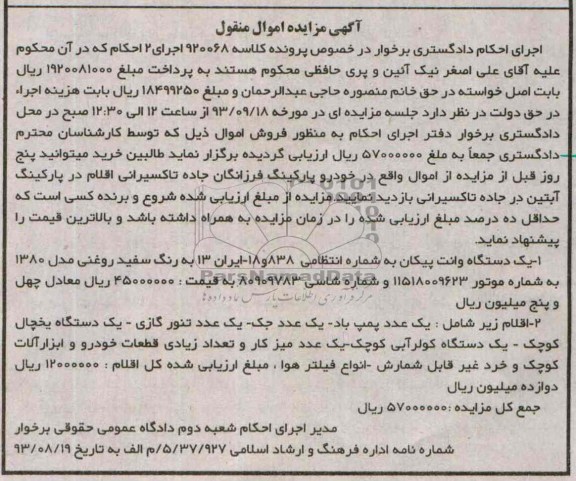 آگهی مزایده اموال منقول
اجرای احکام دادگستری برخوار در خصوص پرونده کلاسه ۹۲۰۰۶۸ اجرای۲ احکام که در آن محکوم
علیه آقای علی اصغر نیک آئین و پری حافظی محکوم هستند به پرداخت مبلغ ۱۹۲۰۰۸۱۰۰۰ ریال
بابت اصل خواسته در حق خانم منصوره حاجی عبدالرحمان و مبلغ ۱۸۴۹۹۲۵۰ ریال بابت هزینه اجراء
در حق دولت در نظر دارد جلسه مزایده ای در مورخه ۹۳/۰۹/۱۸ از ساعت ۱۲ الی ۱۲:۳۰ صبح در محل
دادگستری برخوار دفتر اجرای احکام به منظور فروش اموال ذیل که توسط کارشناسان محترم
دادگستری جمعاً به ملغ ۵۷۰۰۰۰۰۰ ریال ارزیابی گردیده برگزار نماید طالبین خرید میتوانید پنج
روز قبل از مزایده از اموال واقع در خودرو پارکینگ فرزانگان جاده تاکسیرانی اقلام در پارکینگ
آبتین در جاده تاکسیرانی بازدید نمایید.مزایده از مبلغ ارزیابی شده شروع و برنده کسی است که
حداقل ده درصد مبلغ ارزیابی شده را در زمان مزایده به همراه داشته باشد و بالاترین قیمت را
پیشنهاد نماید.
۱-یک دستگاه وانت پیکان به شماره انتظامی ۸۳۸و۱۸-ایران ۱۳ به رنگ سفید روغنی مدل ۱۳۸۰
به شماره موتور ۱۱۵۱۸۰۰۹۶۲۳ و شماره شاسی ۸۰۹۰۹۷۸۳ به قیمت : ۴۵۰۰۰۰۰۰ ریال معادل چهل
و پنج میلیون ریال
ParsNamadData
مرکز فرآوری اطلاعات پارس نماد داده ها
۲-اقلام زیر شامل : یک عدد پمپ باد- یک عدد جک- یک عدد تنور گازی - یک دستگاه یخچال
کوچک - یک دستگاه کولرآبی کوچک-یک عدد میز کار و تعداد زیادی قطعات خودرو و ابزارآلات
کوچک و خرد غیر قابل شمارش -انواع فیلتر هوا ، مبلغ ارزیابی شده کل اقلام : ۱۲۰۰۰۰۰۰ ریال
دوازده میلیون ریال
جمع کل مزایده :۵۷۰۰۰۰۰۰ ریال
مدیر اجرای احکام شعبه دوم دادگاه عمومی حقوقی برخوار
شماره نامه اداره فرهنگ و ارشاد اسلامی ۵/۳۷/۹۲۷/م الف به تاریخ ۹۳/۰۸/۱۹